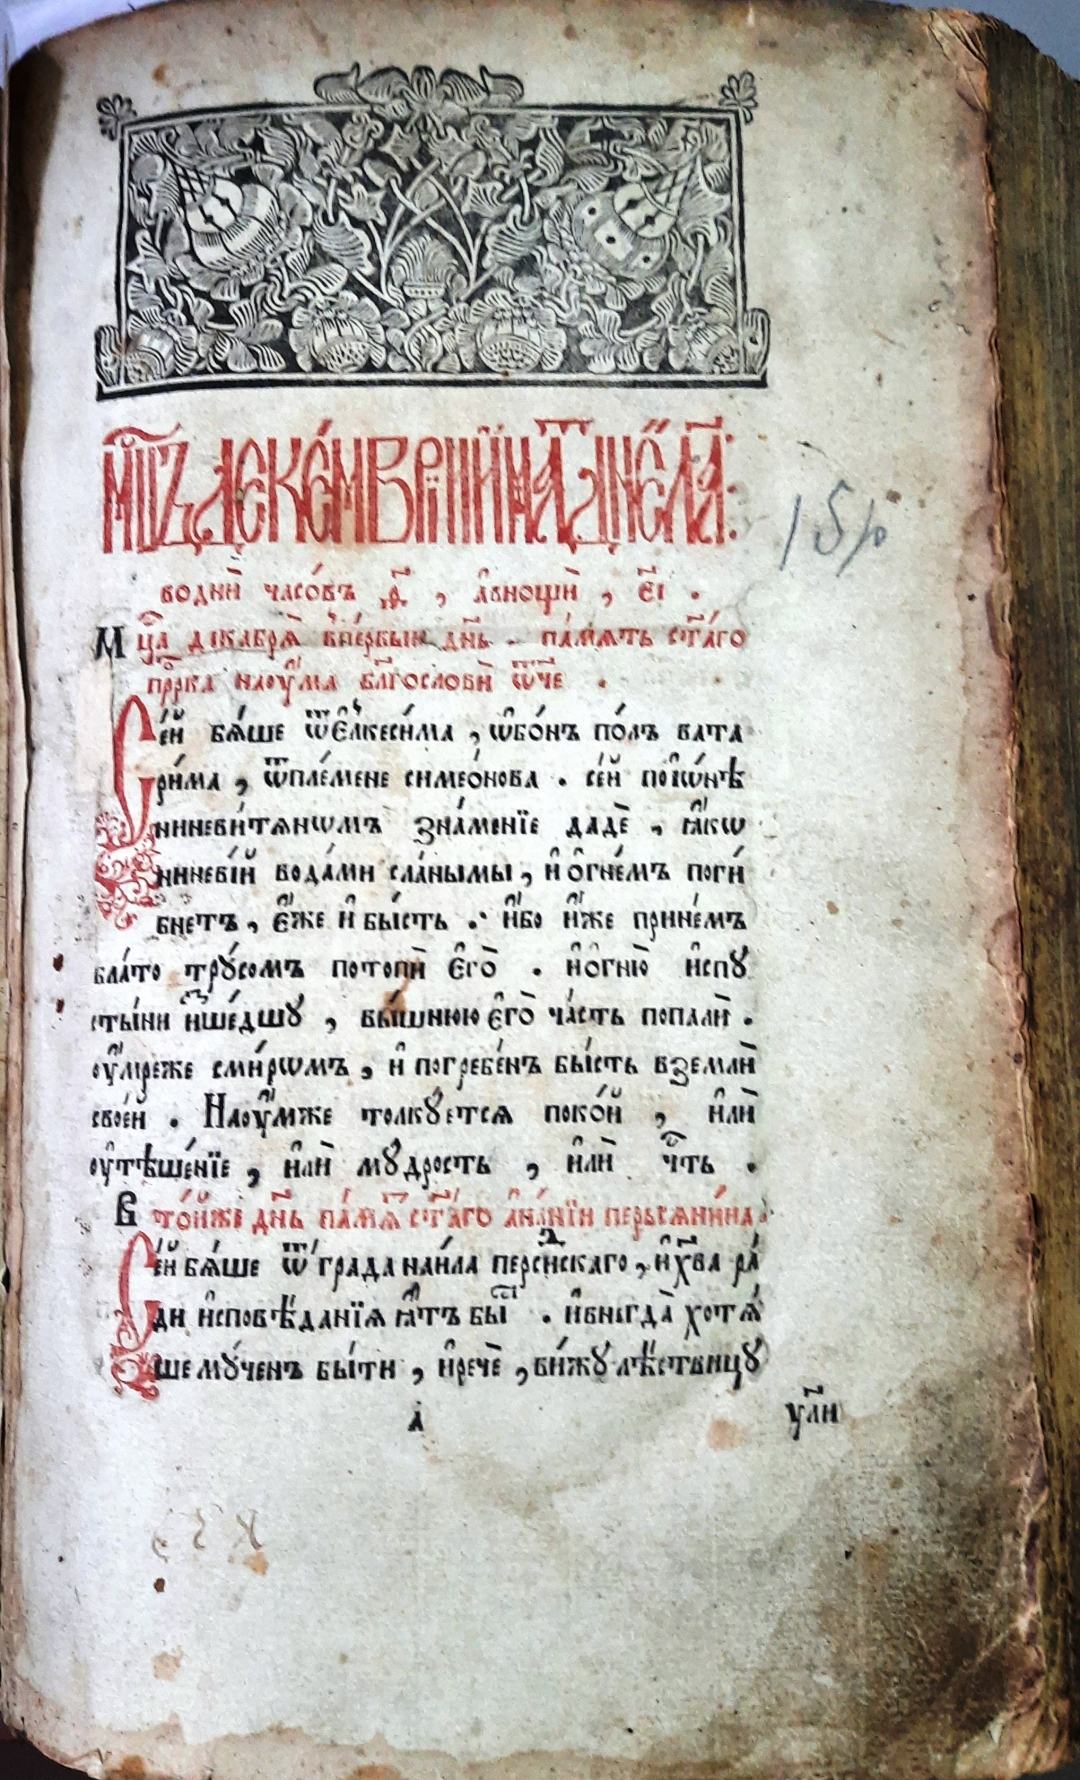 мц҃ъ декемврїй имать дне́й ла҃:
во днѝ часо́въ , а в нощѝ , еі҃ .
Мц҃а декабрѧ̀ в пе́рвый дн҃ь . па́мѧть ст҃а́го
прⷪ҇рка наѹ́ма бл҃гословѝ ѿч҃е .
Се́й бѧ́ше ѿ є҆лкесі́ма , ѡ҆бо́нъ по́лъ вата
ри́ма , ѿ пле́мене симео́нова . се́й по і҆ѡ́нѣ
ниневи́тѧнѡмъ зна́менїе дадѐ , ꙗ҆́кѡ
ниневі́й вода́ми сла́ными , и҆ о҆гне́мъ поги́
бнетъ , є҆́же и҆ бы́сть . и҆́бо и҆́же прине́мъ
бла́то трꙋ́сомъ потопѝ є҆гѡ̀ . и҆ о҆гню̀ и҆спꙋ
сты́ни и҆зше́дшꙋ , вы́шнюю є҆гѡ̀ ча́сть попалѝ .
ѹ҆́мреже сми́рѡмъ , и҆ погребе́нъ бы́сть в землѝ
свое́й . Наѹ҆́мже толкꙋ́етсѧ поко́й , и҆лѝ
ѹ҆тѣше́нїе , и҆лѝ мꙋ́дрость , и҆лѝ чⷭ҇ть .
В то́йже дн҃ь па́мѧⷮ ст҃а́го а҆на́нїи персѧни́на .
Се́й бѧ́ше ѿ гра́да наи́ла перси́дскаго , и҆ хв҃а ра́
ди и҆сповѣ́данїѧ ꙗ҆́тъ бы́сⷮ . и҆ внегда̀ хотѧ́
ше мꙋ́ченъ бы́ти , и҆ речѐ , ви́жꙋ лѣ́ствицꙋ
а